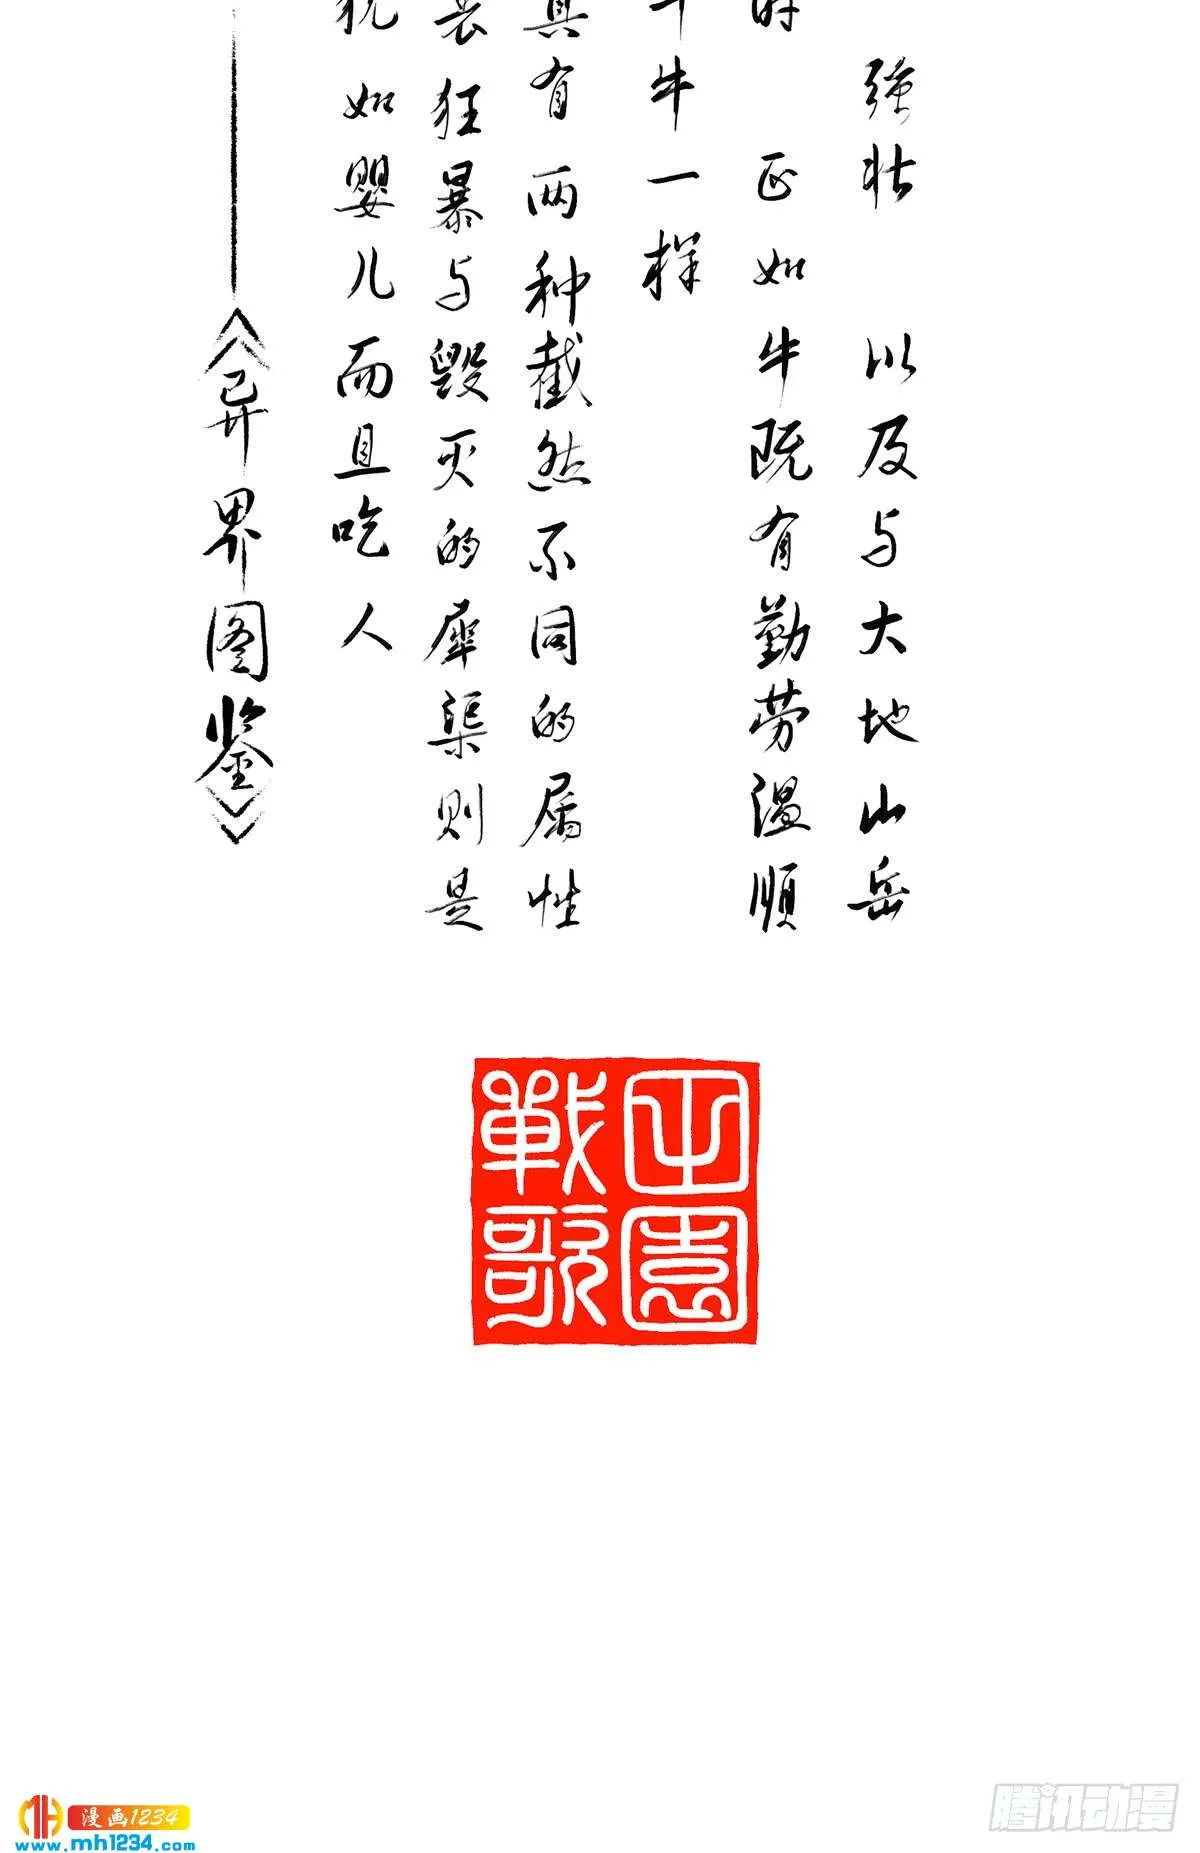 強壮 以及与大地山岳
时 正如牛既有勤劳温順
牛牛一样
具有两种截然不同的属性
狂暴与毁灭的犀渠则是
如婴儿而且吃人
——《异界图鉴》
戰歌
漫画1234
www.mh1234.com
腾讯动漫